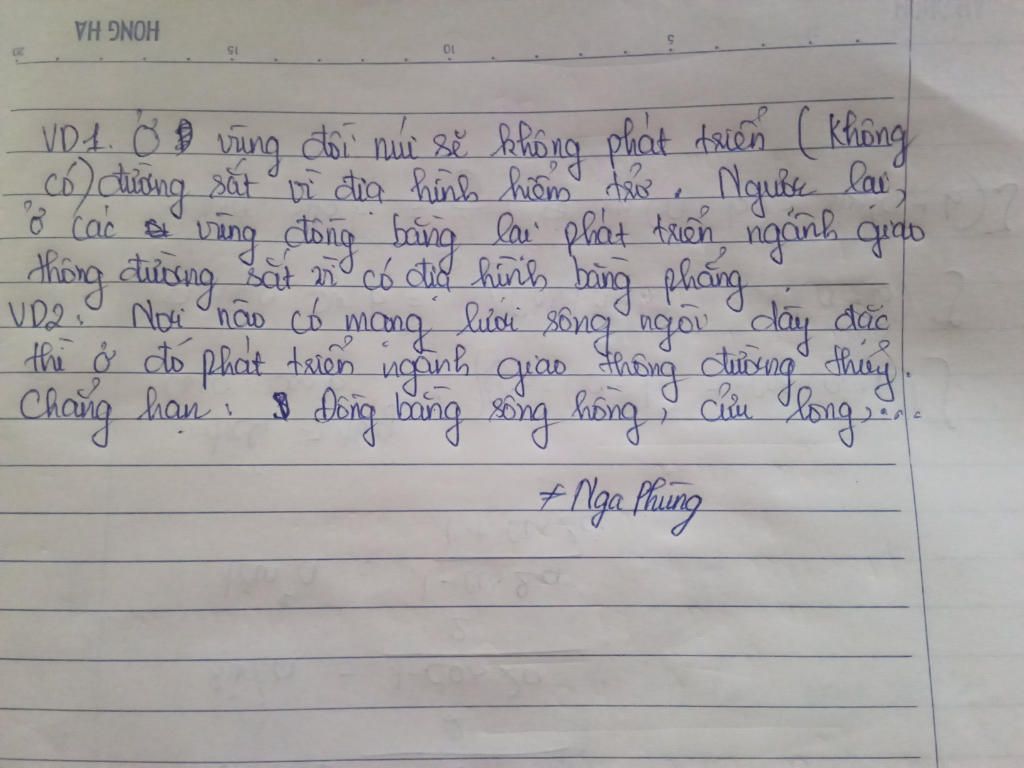 HONG HA
20 15 10 5
VD1. Ở vùng đồi núi sẽ không phát triển (không
có) đường sắt vì địa hình hiểm trở. Ngược lại,
ở các vùng đồng bằng lại phát triển ngành giao
thông đường sắt vì có địa hình bằng phẳng.
VD2. Nơi nào có mạng lưới sông ngòi dày đặc
thì ở đó phát triển ngành giao thông đường thủy.
Chẳng hạn: Đồng bằng sông hồng, cửu long,...
≠ Nga Phùng